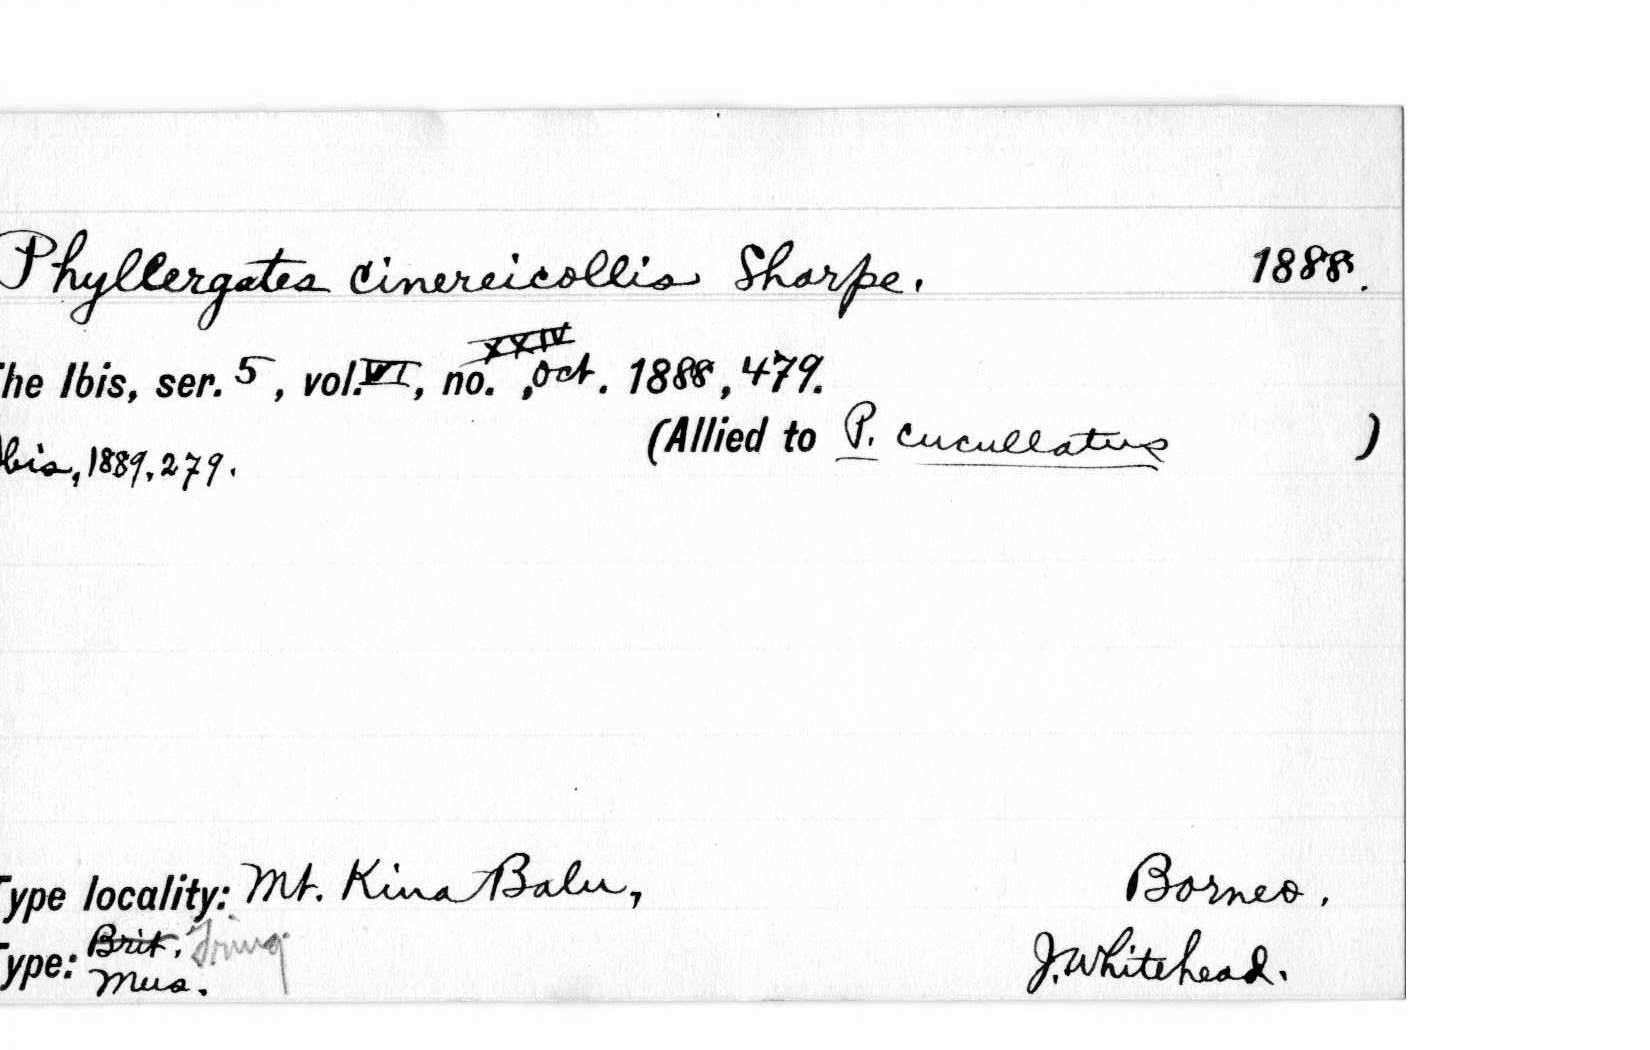 Phyllergates cinereicollis Sharpe. 1888.
XXIV
The Ibis, ser. 5, vol. VI, no. , Oct. 1888, 479.
(Allied to P. cucullatus )
Ibis, 1889, 279.
Type locality: Mt. Kina Balu, Borneo.
Type: Brit. Tring J. Whitehead.
Mus.